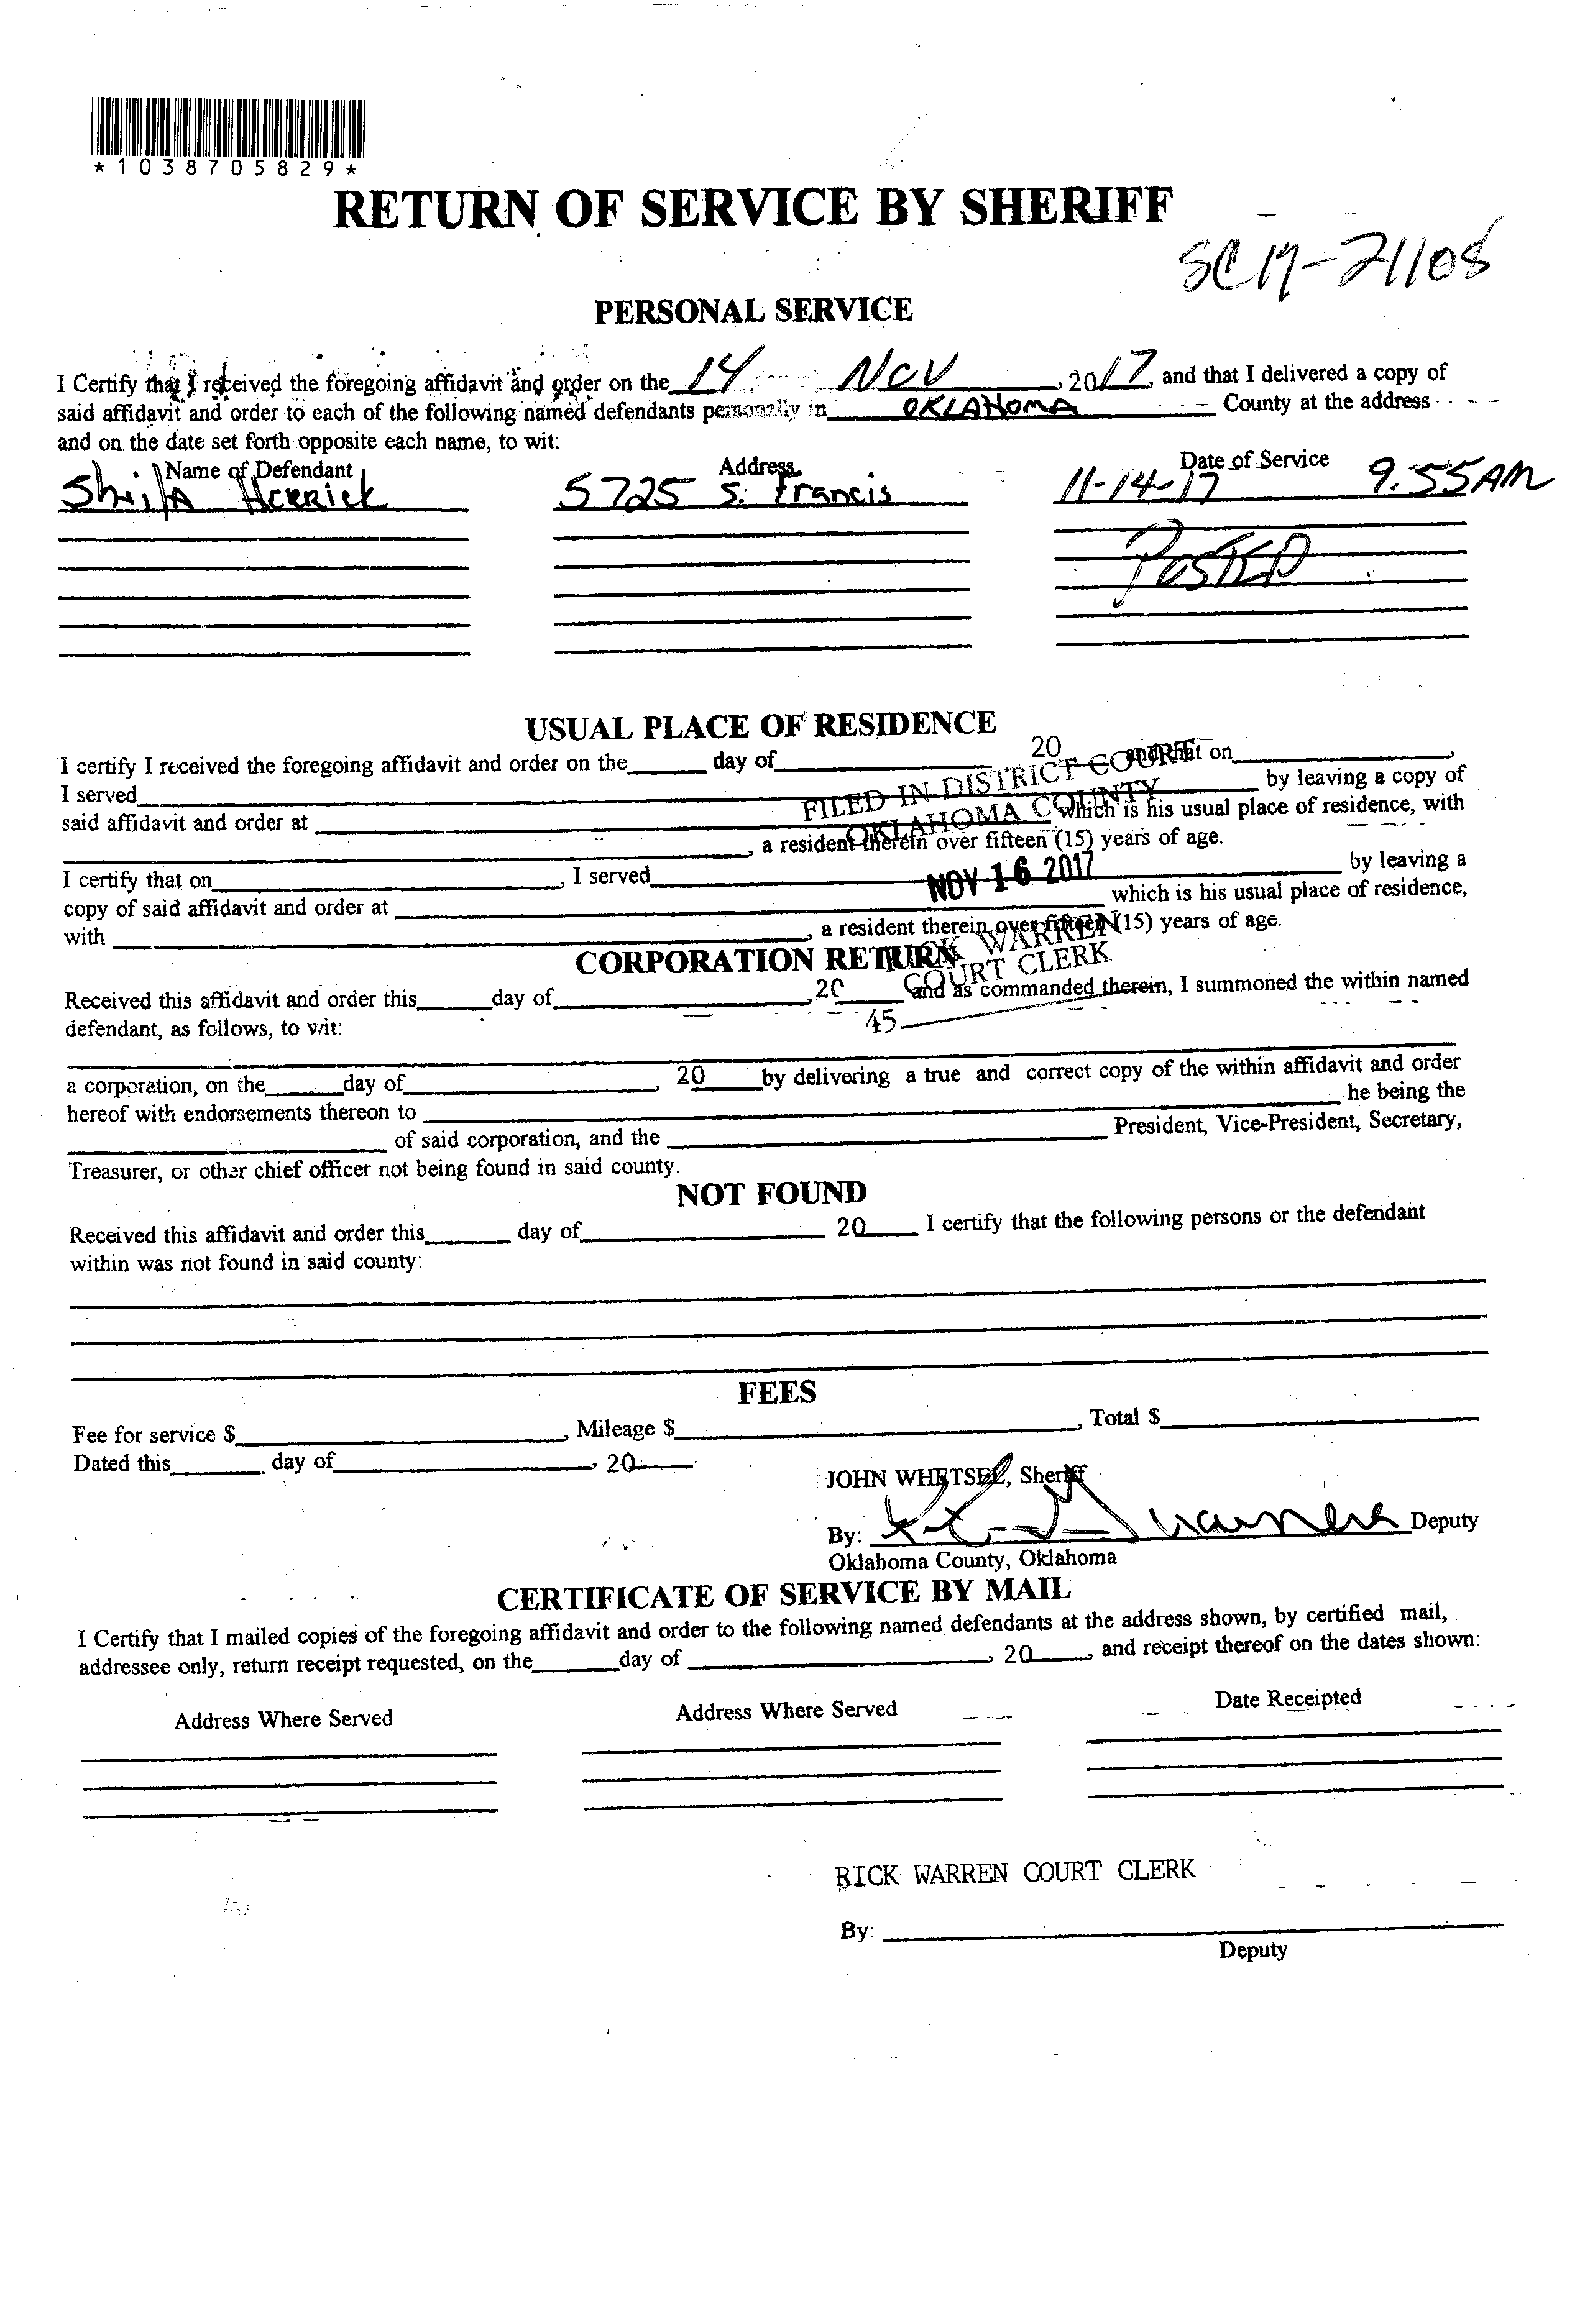 *1038705829*
RETURN OF SERVICE BY SHERIFF
SC17-21108
PERSONAL SERVICE
I Certify that I received the foregoing affidavit and order on the 14 Nov, 2017, and that I delivered a copy of
said affidavit and order to each of the following named defendants personally in OKLAHOMA County at the address
and on the date set forth opposite each name, to wit:
Name of Defendant Address Date of Service
Sheila Herrick 5725 S. Francis 11-14-17 9:55AM
POSTED
USUAL PLACE OF RESIDENCE
I certify I received the foregoing affidavit and order on the ______ day of ______ 20 and that on ______,
I served ______ by leaving a copy of
said affidavit and order at ______ which is his usual place of residence, with
______, a resident therein over fifteen (15) years of age.
I certify that on ______, I served ______ by leaving a
copy of said affidavit and order at ______ which is his usual place of residence,
with ______, a resident therein over fifteen (15) years of age.
FILED IN DISTRICT COURT
OKLAHOMA COUNTY
NOV 16 2017
RICK WARREN
COURT CLERK
45
CORPORATION RETURN
Received this affidavit and order this ______ day of ______, 20 ______ and as commanded therein, I summoned the within named
defendant, as follows, to wit:
a corporation, on the ______ day of ______, 20 ______ by delivering a true and correct copy of the within affidavit and order
hereof with endorsements thereon to ______ he being the
______ of said corporation, and the ______ President, Vice-President, Secretary,
Treasurer, or other chief officer not being found in said county.
NOT FOUND
Received this affidavit and order this ______ day of ______ 20 ______ I certify that the following persons or the defendant
within was not found in said county:
FEES
Fee for service $ ______, Mileage $ ______, Total $ ______
Dated this ______ day of ______, 20 ______.
JOHN WHETSEL, Sheriff
By: ______ Deputy
Oklahoma County, Oklahoma
CERTIFICATE OF SERVICE BY MAIL
I Certify that I mailed copies of the foregoing affidavit and order to the following named defendants at the address shown, by certified mail,
addressee only, return receipt requested, on the ______ day of ______, 20 ______, and receipt thereof on the dates shown:
Address Where Served Address Where Served Date Receipted
RICK WARREN COURT CLERK
By: ______
Deputy